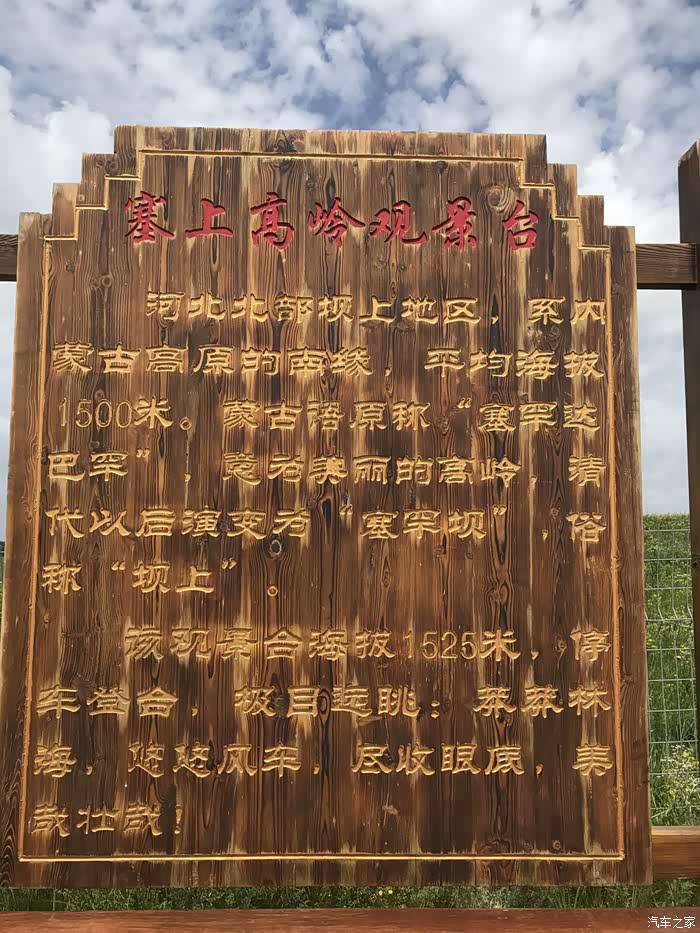 塞上高岭观景台
河北北部坝上地区，系内
蒙古高原的南缘，平均海拔
1500米。蒙古语原称“塞罕达
巴罕”，意为美丽的高岭，清
代以后演变为“塞罕坝”，俗
称“坝上”。
该观景台海拔1525米，停
车登台，极目远眺：莽莽林
海，悠悠风车，尽收眼底，美
哉壮哉！
汽车之家